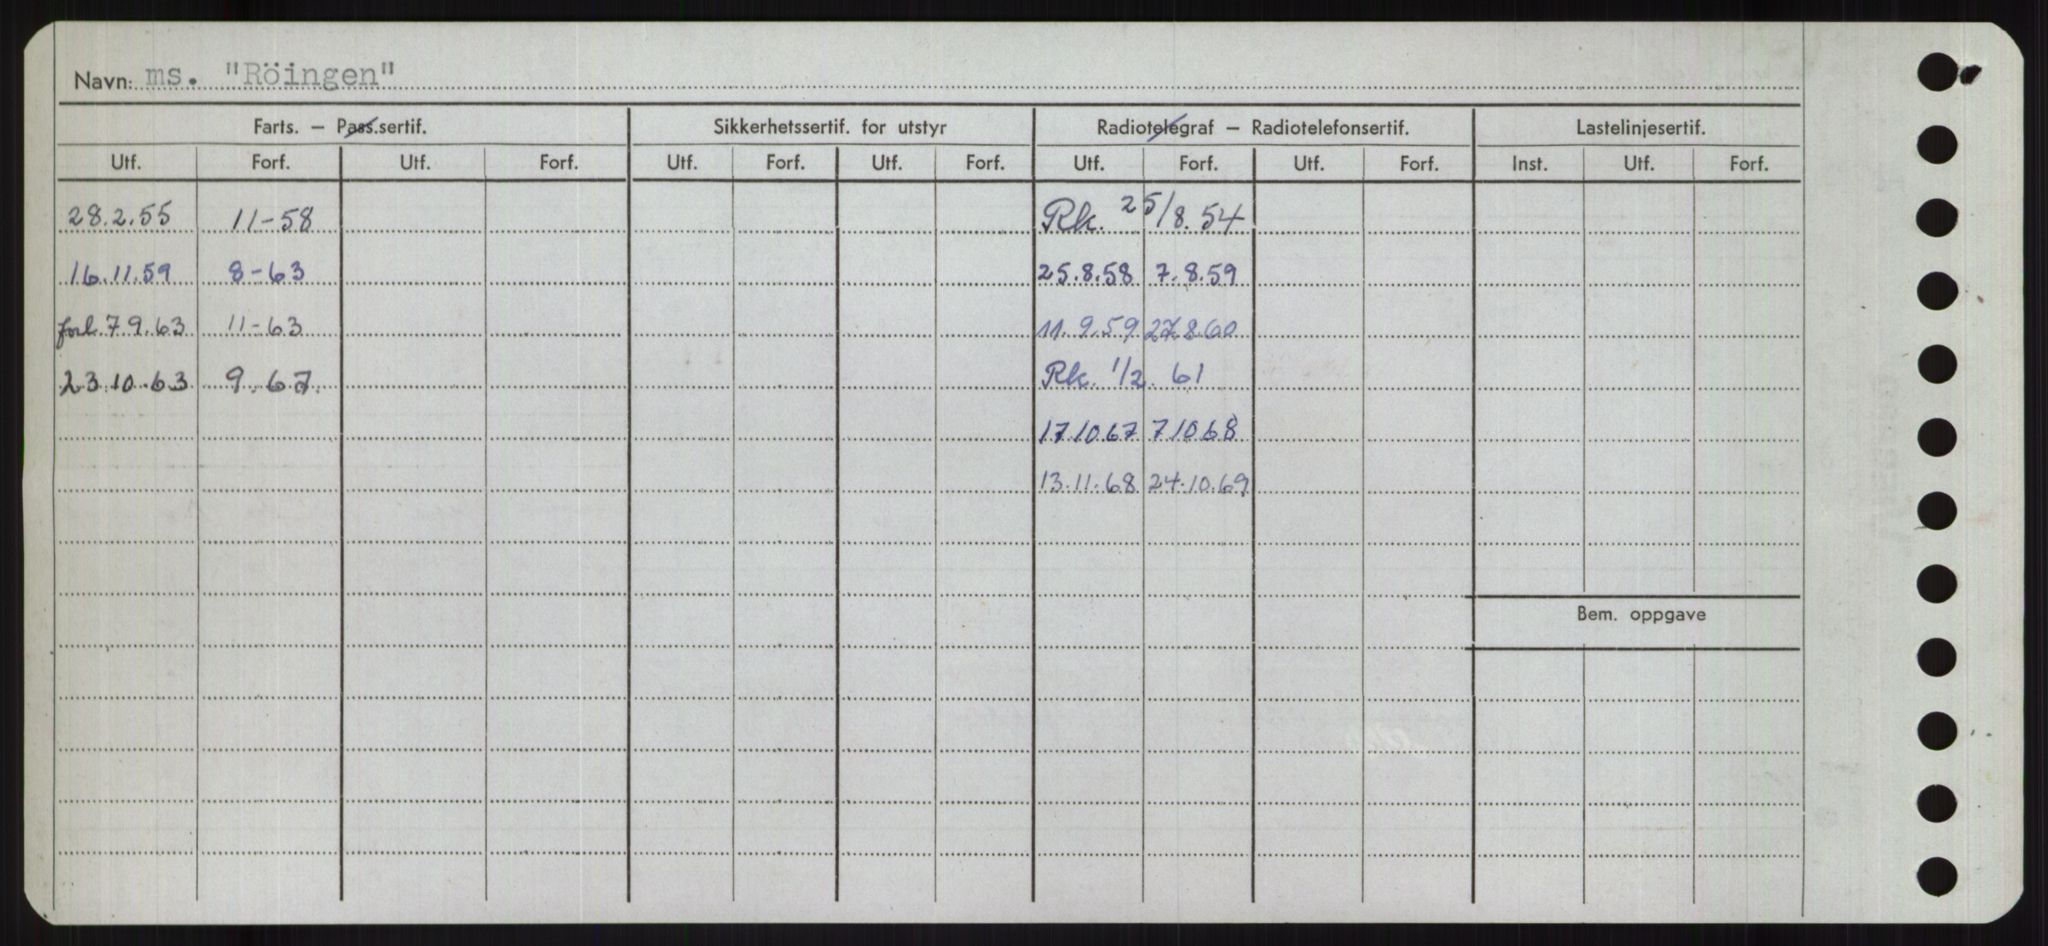 Navn: ms. "Röingen"
Farts. — Pass.sertif. Sikkerhetssertif. for utstyr Radiotelegraf — Radiotelefonsertif. Lastelinjesertif.
Utf. Forf. Utf. Forf. Utf. Forf. Utf. Forf. Utf. Forf. Utf. Forf. Inst. Utf. Forf.
28.2.55 11-58 Rk. 25/8.54
16.11.59 8-63 25.8.58 7.8.59
forl. 7.9.63 11-63 11.9.59 27.8.60
23.10.63 9.67. Rk. 1/2. 61
17.10.67 7.10.68
13.11.68 24.10.69
Bem. oppgave